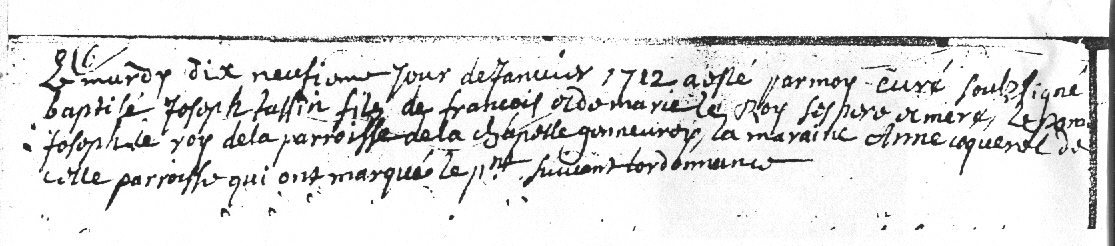 Le mardy dix neufieme jour de Janvier 1712 a esté par moy curé soubsigné
baptisé Joseph tassin filz de francois et de marie le Roy ses pere et mere, le para
Joseph le roy de la parroisse de la chapelle gonneuroy, la maraine Anne coquerel de
celle parroisse qui ont marqué le pnt suivant lordonnance